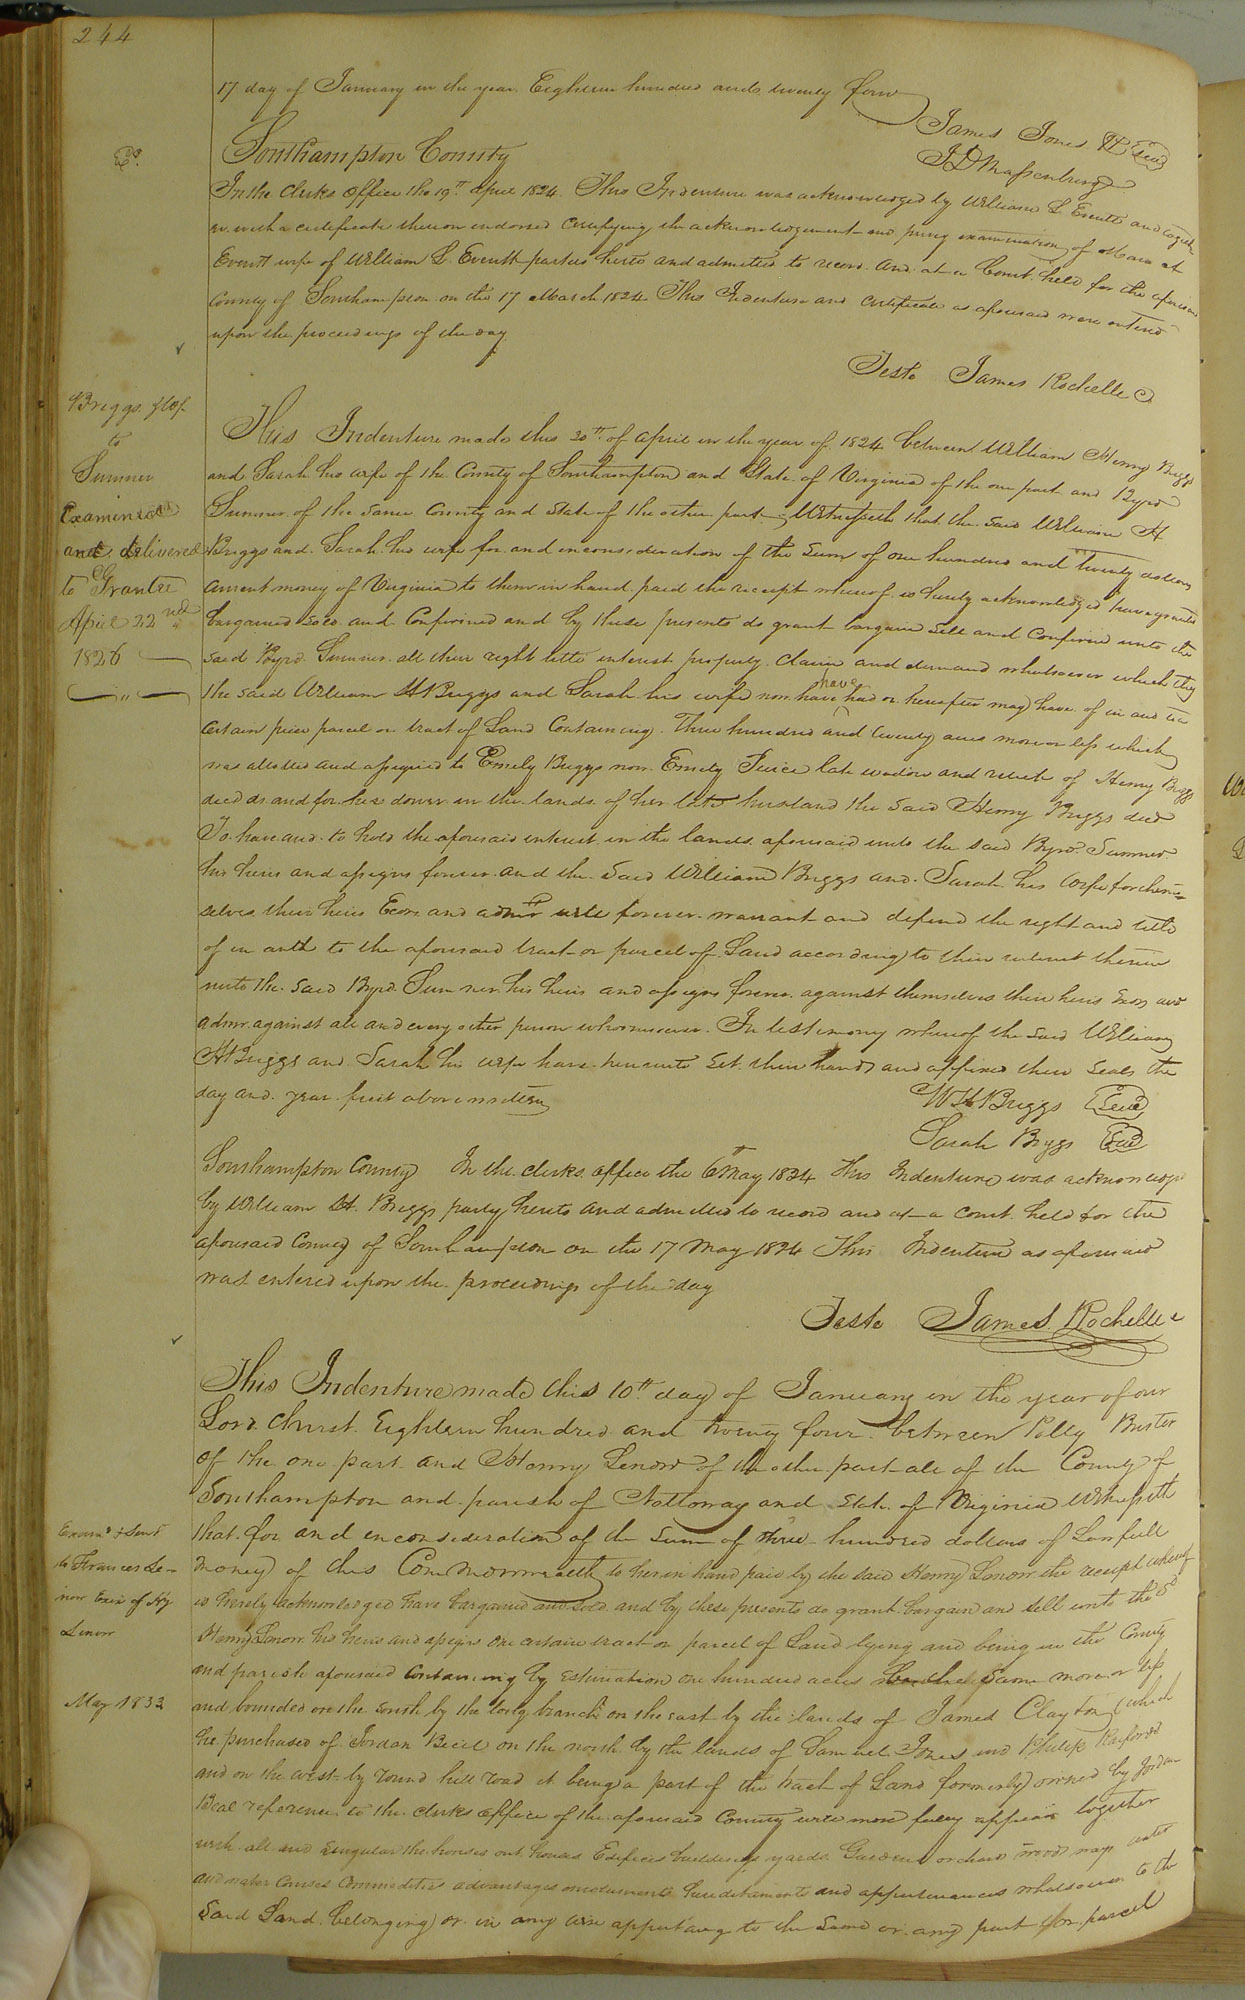 244
17 day of January in the year Eighteen hundred and twenty four
James Jones Seal
Southampton County
In the Clerks office the 19th april 1824. This Indenture was acknowledged by William L Everitt and together
with a certificate thereon endorsed Certifying the acknowledgement and privy examination of
Everitt wife of William L. Everitt parties hereto and admitted to record. And at a Court held for the aforesaid
County of Southampton on the 17 March 1824 This Indenture and Certificate as aforesaid were entered
upon the proceedings of the day
Teste James Rochelle C
Briggs
to
Sumner
Examined
and delivered
to Grantee
April 22nd
1826
This Indenture made this 20th of april in the year of 1824 between William Henry Briggs
and Sarah his wife of the County of Southampton and State of Virginia of the one part and Byrd
Sumner of the same County and State of the other part Witnesseth that the said William H
Briggs and Sarah his wife for and in consideration of the Sum of one hundred and twenty dollars
current money of Virginia to them in hand paid the receipt whereof is hereby acknowledged have granted
bargained sold and Confirmed and by these presents do grant bargain sell and Confirm unto the
said Byrd Sumner all their right title interest property Claim and demand whatsoever which they
the said William H Briggs and Sarah his wife now have have had or hereafter may have of in and to a
certain piece parcel or tract of Land Containing Three hundred and twenty acres more or less which
was allotted and assigned to Emely Briggs now Emely late widow and relict of Henry Briggs
decd as and for her dower in the lands of her late husband the said Henry Briggs decd
To have and to hold the aforesaid interest in the lands aforesaid unto the said Byrd Sumner
his heirs and assigns forever and the Said William Briggs and Sarah his wife for them
selves their heirs Exors and admrs will forever warrant and defend the right and title
of in and to the aforesaid tract or parcel of Land according to their interest therein
unto the said Byrd Sumner his heirs and assigns forever against themselves their heirs Exors and
admr. against all and every other person whomsoever. In testimony whereof the said William
H Briggs and Sarah his wife have hereunto Set their hands and affixed their Seals the
day and year first above written
W H Briggs Seal
Sarah Briggs Seal
Southampton County In the clerks office the 6th May 1824 This Indenture was acknowledged
by William H. Briggs party hereto and admitted to record and at a Court held for the
aforesaid County of Southampton on the 17 May 1824 This Indenture as aforesaid
was entered upon the proceedings of the day
Teste James Rochelle C
This Indenture made this 10th day of January in the year of our
Lord Christ Eighteen hundred and twenty four between Polly
of the one part and Henry Lenow of the other part all of the County of
Southampton and parish of Nottoway and State of Virginia Witnesseth
that for and in consideration of the Sum of three hundred dollars of Lawfull
money of this Commonwealth to her in hand paid by the said Henry Lenow the receipt whereof
is hereby acknowledged have bargained and sold and by these presents do grant bargain and sell unto the sd
Henry Lenow his heirs and assigns one certain tract or parcel of Land lying and being in the County
and parish aforesaid Containing by Estimation one hundred acres be the same more or less
and bounded on the South by the branch on the east by the lands of James Clayton (which
he purchased of Jordan Beal on the north by the lands of Samuel Jones and Philip
and on the west by round hill road it being a part of the tract of Land formerly owned by Jordan
Beal reference to the clerks office of the aforesaid County will more fully appear together
with all and singular the houses out houses Edifices buildings yards Gardens orchard wood ways water
and water Courses Commodities advantages hereditaments and appurtenances whatsoever to the
Said Land belonging or in any wise appertaining to the Same or any part or parcel
Examd & Sent
to Frances Le-
now Exix of Hy
Lenow
May 1833